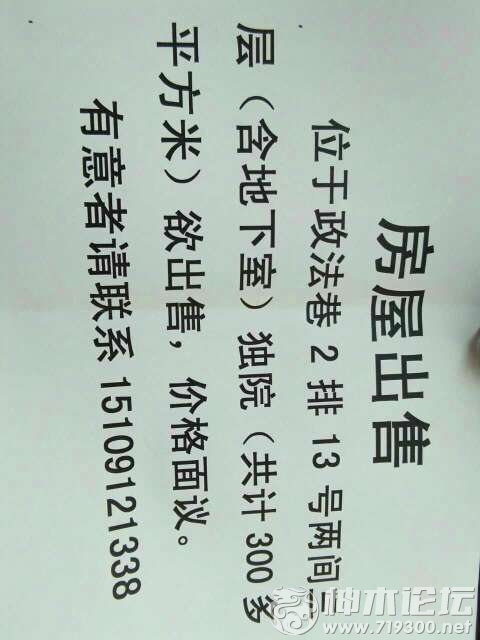 房屋出售
位于政法巷2排13号两间三
层（含地下室）独院（共计300多
平方米）欲出售，价格面议。
有意者请联系 15109121338
神木论坛
www.719300.net